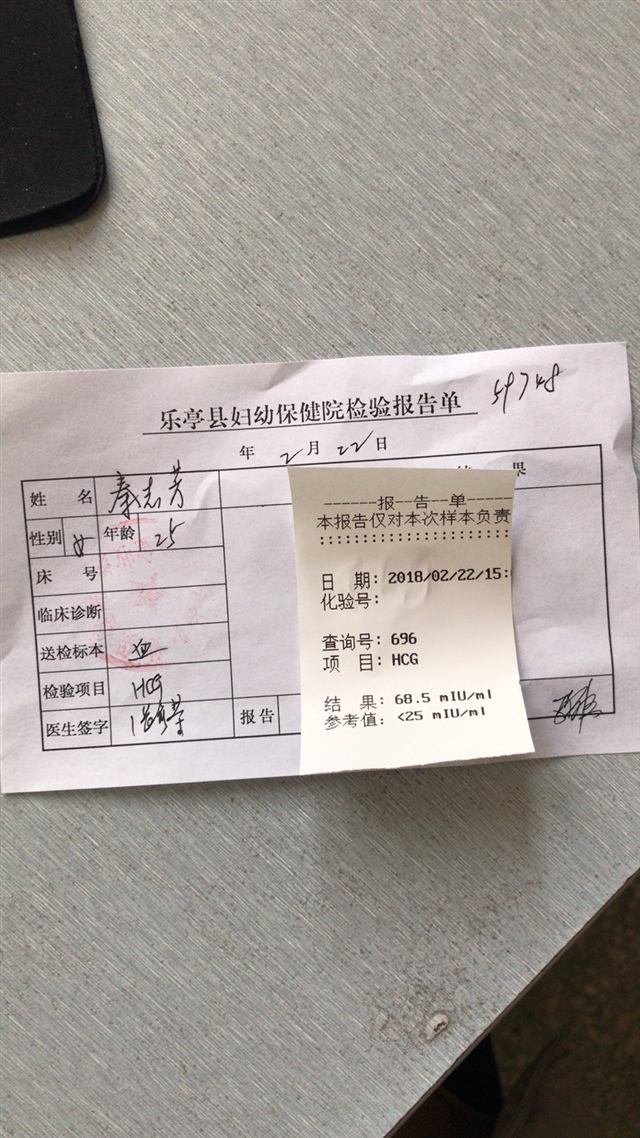 乐亭县妇幼保健院检验报告单
59748
年 2 月 22 日
姓 名 秦志芳
性别 女 年龄 25
床 号
临床诊断
送检标本 血
检验项目 HCG
医生签字
报告
果
------报--告--单-----
本报告仅对本次样本负责
日 期: 2018/02/22/15:
化验号:
查询号: 696
项 目: HCG
结 果: 68.5 mIU/ml
参考值: <25 mIU/ml